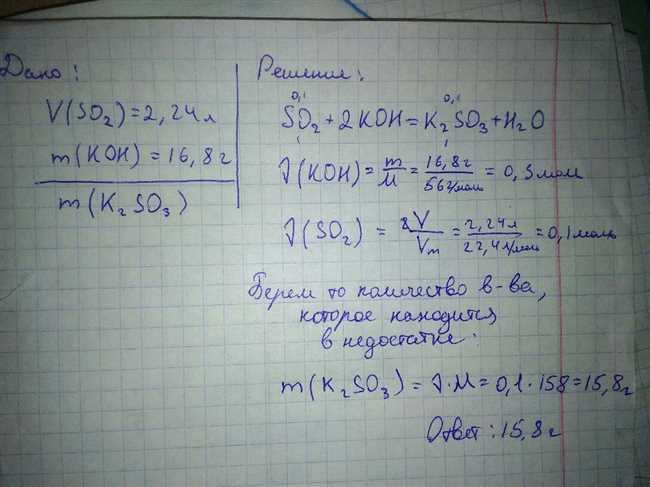 Дано:
V(SO₂) = 2,24 л
m(KOH) = 16,8 г
m(K₂SO₃)
Решение:
0,1 0,1
SO₂ + 2KOH = K₂SO₃ + H₂O
1 1
ν(KOH) = m/M = 16,8 г/56 г/моль = 0,3 моль
ν(SO₂) = V/Vm = 2,24 л/22,4 л/моль = 0,1 моль
Берем то количество в-ва,
которое находится
в недостатке:
m(K₂SO₃) = ν·M = 0,1·158 = 15,8 г
Ответ: 15,8 г